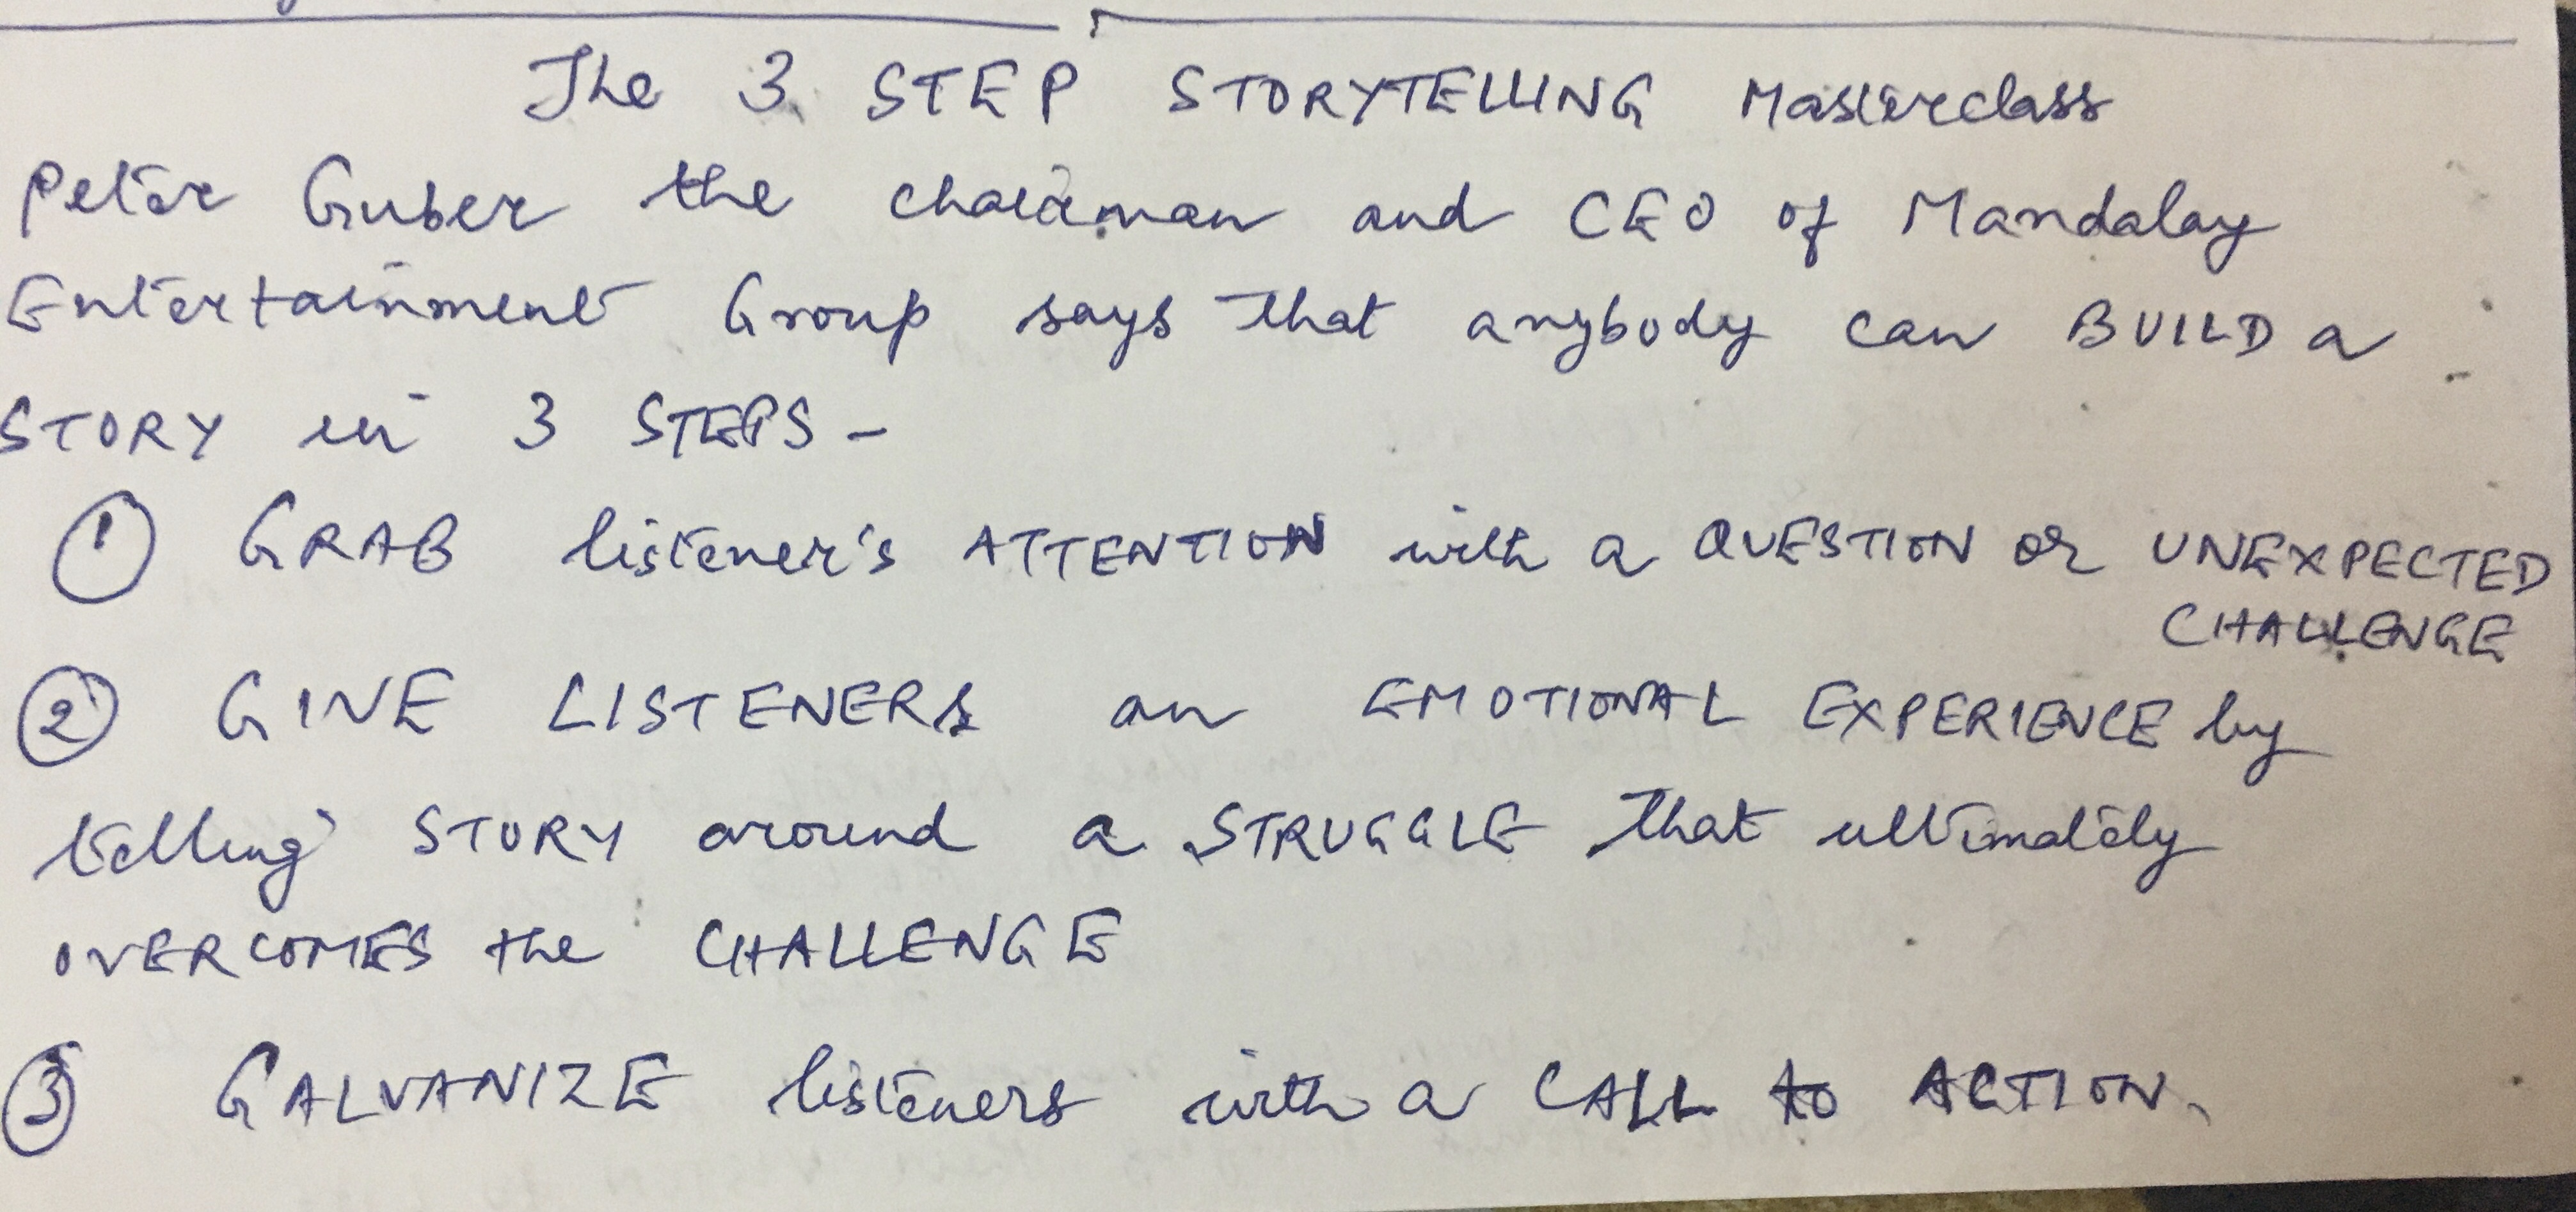 The 3 STEP STORYTELLING Masterclass
Peter Guber the chairman and CEO of Mandalay
Entertainment Group says that anybody can BUILD a
STORY in 3 STEPS -
① GRAB listener's ATTENTION with a QUESTION or UNEXPECTED
CHALLENGE
② GIVE LISTENERS an EMOTIONAL EXPERIENCE by
telling STORY around a STRUGGLE that ultimately
OVERCOMES the CHALLENGE
③ GALVANIZE listeners with a CALL to ACTION.